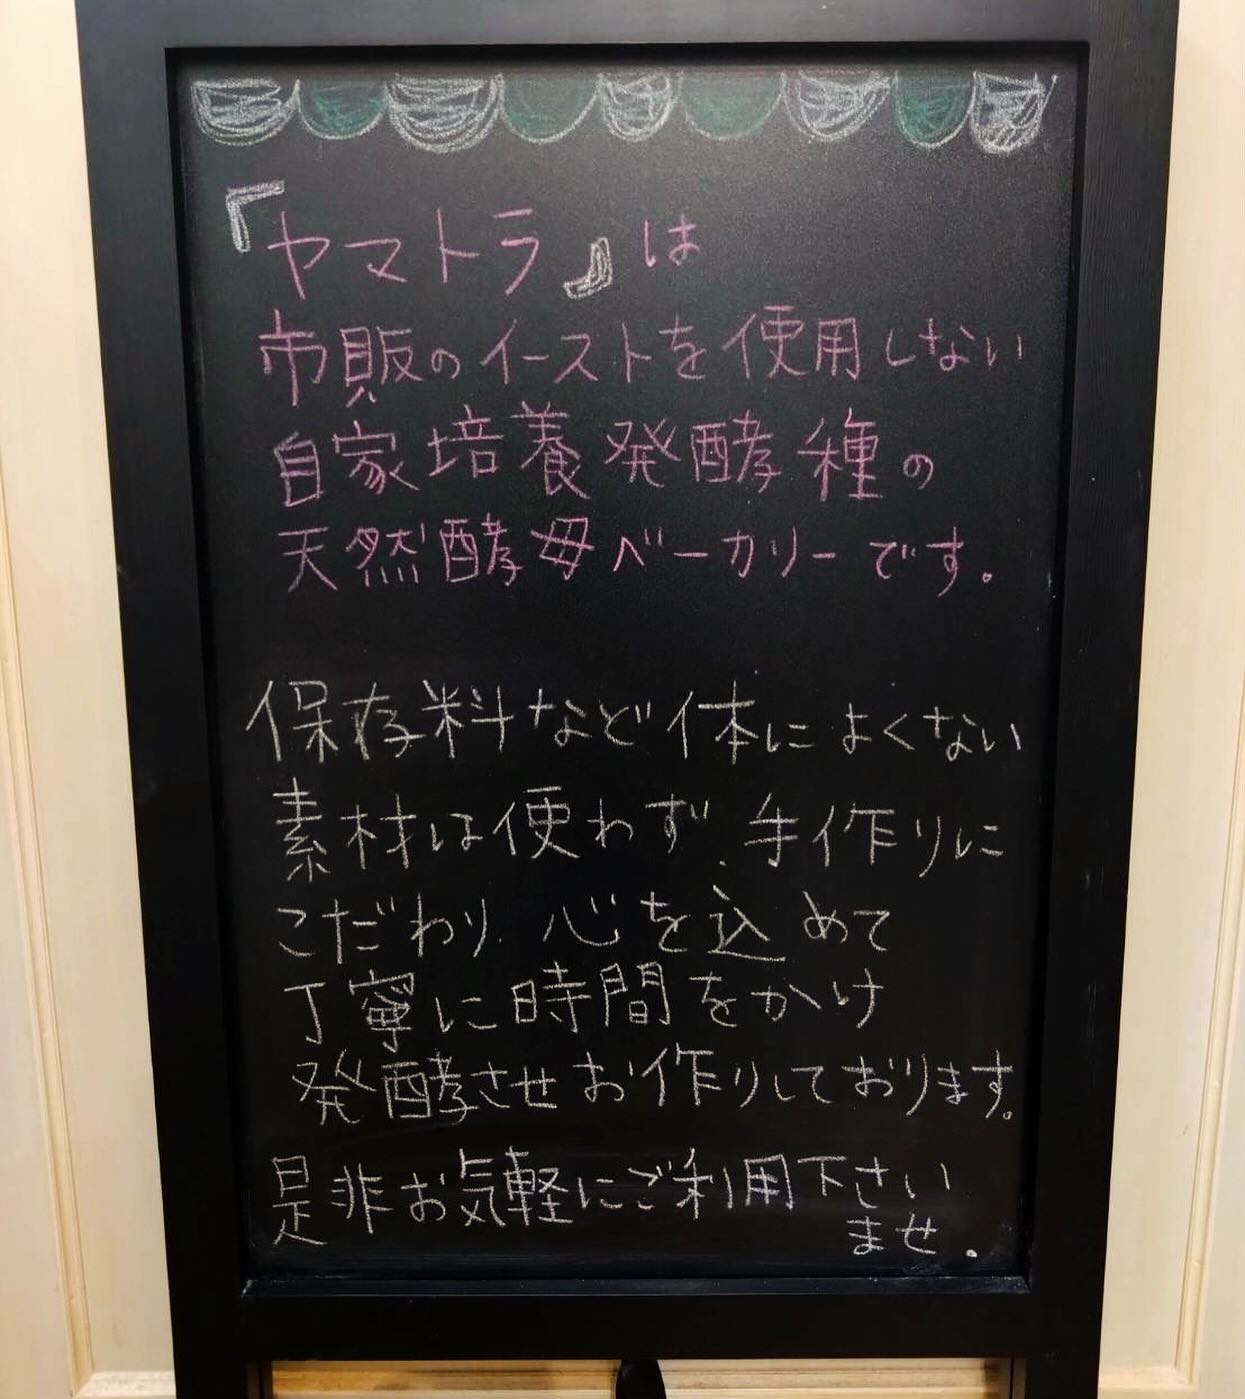 『ヤマトラ』は
市販のイーストを使用しない
自家培養発酵種の
天然酵母ベーカリーです。
保存料など体によくない
素材は使わず、手作りに
こだわり、心を込めて
丁寧に時間をかけ
発酵させお作りしております。
是非お気軽にご利用下さい
ませ。